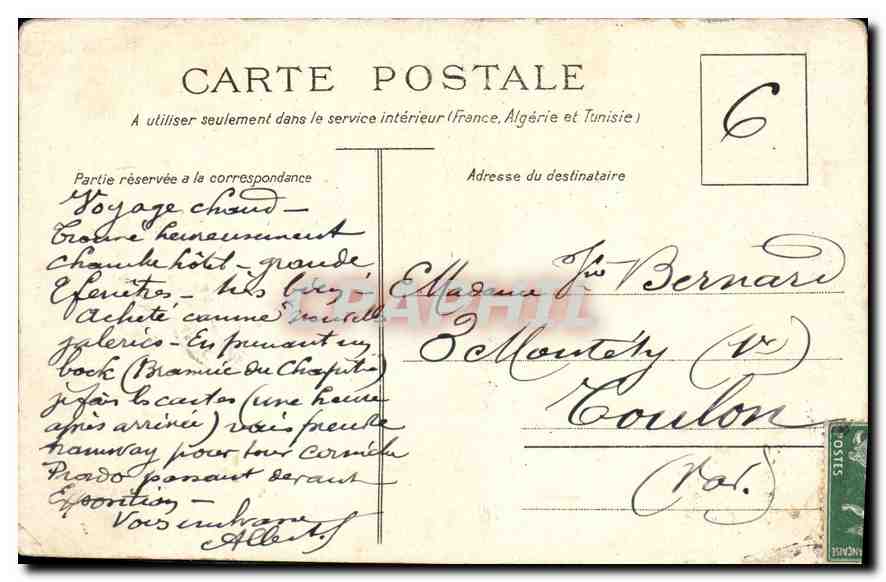 CARTE POSTALE
A utiliser seulement dans le service intérieur (France, Algérie et Tunisie)
6
Partie réservée a la correspondance
Adresse du destinataire
Voyage chaud —
Trouvé heureusement
chambre hôtel — grande
2 fenêtres — très bien
Acheté canne nouvelles
galeries — En prenant un
bock (Brasserie du Chapitre)
je fais les cartes (une heure
après arrivée) vais prendre
tramway pour tour corniche
Prado passant devant
Exposition —
Albert
Madame Bernard
3 Montéty
Toulon
(Var.)
POSTES
CRAPHIL